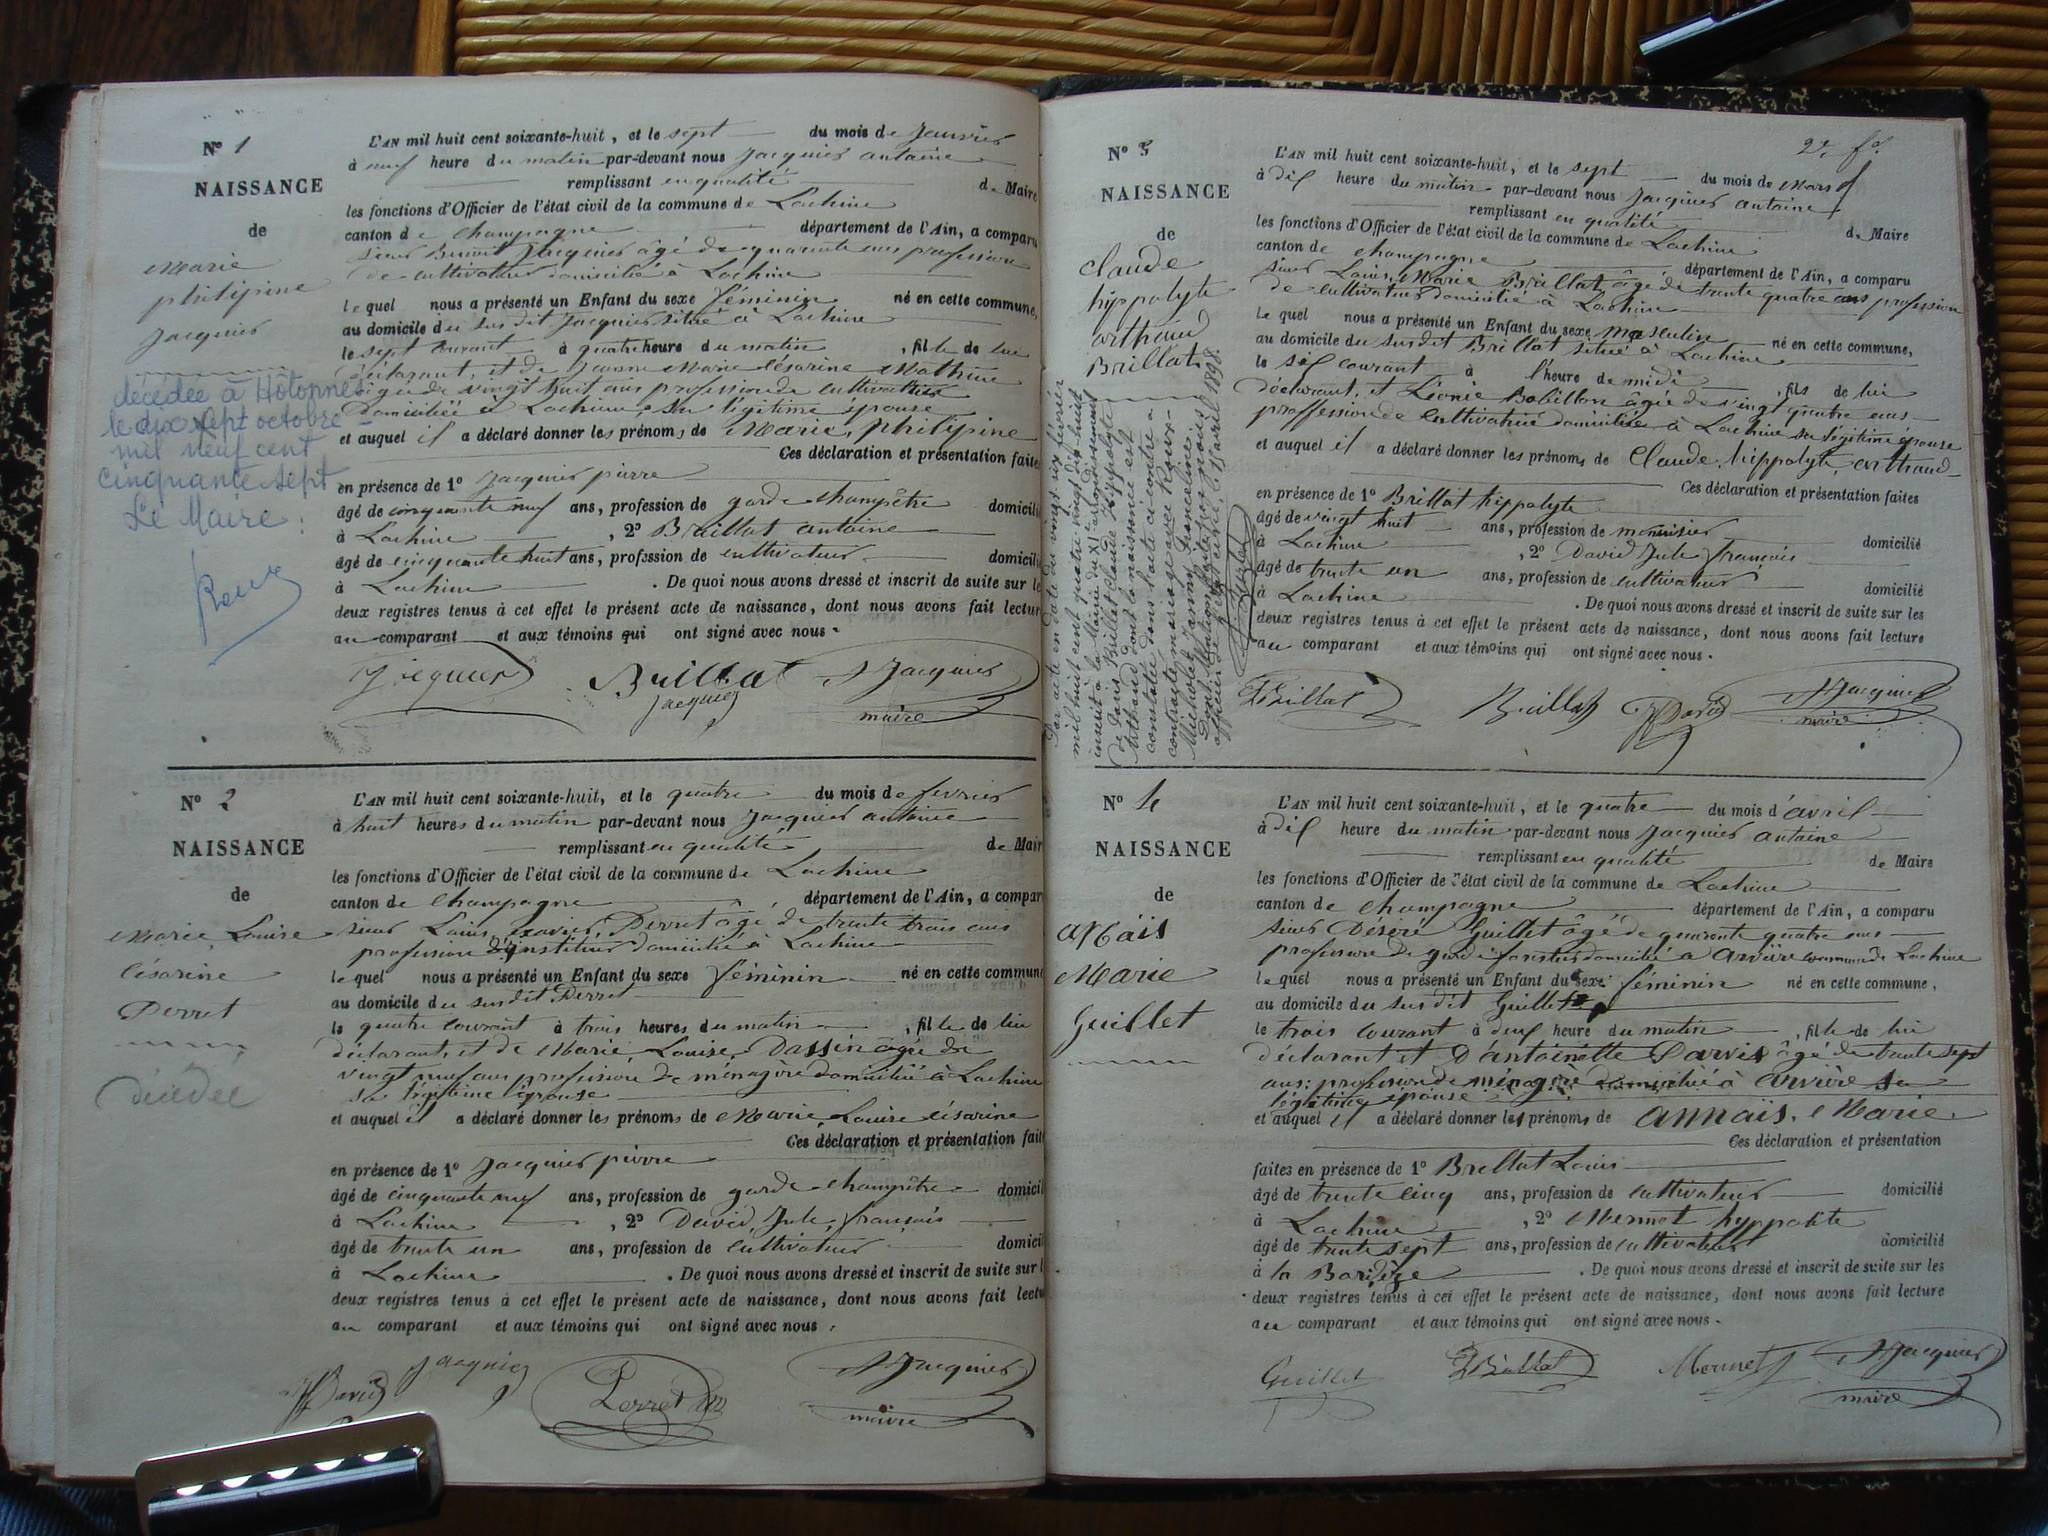 Nº 1
NAISSANCE
de
Marie
philipine
Jacquier
décédée à Hotonnes
le dix sept octobre
mil neuf cent
cinquante sept
Le Maire :
L'AN mil huit cent soixante-huit, et le sept du mois de Janvier
à neuf heure du matin par-devant nous Jacquier antoine
remplissant en qualité de Maire
les fonctions d'Officier de l'état civil de la commune de Lochieu
canton de Champagne département de l'Ain, a comparu
sieur Benoit Jacquier âgé de quarante ans profession
de cultivateur domicilié à Lochieu
le quel nous a présenté un Enfant du sexe féminin né en cette commune,
au domicile du susdit Jacquier situé à Lochieu
le sept courant à quatre heure du matin, fille de lui
déclarant, et de Jeanne Marie Césarine Mathieu
âgée de vingt huit ans profession de cultivatrice
domiciliée à Lochieu, sa légitime épouse
et auquel il a déclaré donner les prénoms de Marie, philipine
Ces déclaration et présentation faites
en présence de 1º Jacquier pierre
âgé de cinquante neuf ans, profession de garde champêtre domicilié
à Lochieu, 2º Brillat antoine
âgé de cinquante huit ans, profession de cultivateur domicilié
à Lochieu. De quoi nous avons dressé et inscrit de suite sur le
deux registres tenus à cet effet le présent acte de naissance, dont nous avons fait lectur
au comparant et aux témoins qui ont signé avec nous.
Jacquier Brillat A Jacquier
Jacquier maire
Nº 2
NAISSANCE
de
Marie, Louise
césarine
Perret
décédée
L'AN mil huit cent soixante-huit, et le quatre du mois de fevrier
à huit heures du matin par-devant nous Jacquier antoine
remplissant en qualité de Mair
les fonctions d'Officier de l'état civil de la commune de Lochieu
canton de Champagne département de l'Ain, a compar
sieur Louis, xavier, Perret âgé de trente trois ans
profession d'instituteur domicilié à Lochieu
le quel nous a présenté un Enfant du sexe féminin né en cette commune
au domicile du susdit Perret
le quatre courant à trois heures du matin, fille de lui
déclarant, et de Marie, Louise, Dassin âgée de
vingt neuf ans profession de ménagère domiciliée à Lochieu
sa légitime épouse
et auquel il a déclaré donner les prénoms de Marie, Louise césarine
Ces déclaration et présentation fait
en présence de 1º Jacquier pierre
âgé de cinquante neuf ans, profession de garde champêtre domicil
à Lochieu, 2º David, Jule, français
âgé de trente un ans, profession de cultivateur domicil
à Lochieu. De quoi nous avons dressé et inscrit de suite sur l
deux registres tenus à cet effet le présent acte de naissance, dont nous avons fait lectu
au comparant et aux témoins qui ont signé avec nous.
JDavid Jacquier Perret A Jacquier
maire
2e fo
Nº 3
NAISSANCE
de
Claude
hippolyte
arthaud
Brillat
Par acte en date du vingt six février
mil huit cent quatre vingt dix huit
inscrit à la Mairie du XIe arrondissement
de Paris Brillat Claude Hippolyte
Arthaud dont la naissance est
constatée dans l'acte ci-contre a
contracté mariage avec Roux
L'AN mil huit cent soixante-huit, et le sept du mois de Mars
à dix heure du matin par-devant nous Jacquier antoine
remplissant en qualité de Maire
les fonctions d'Officier de l'état civil de la commune de Lochieu
canton de champagne département de l'Ain, a comparu
sieur Louis, Marie Brillat, âgé de trente quatre ans profession
de cultivateur domicilié à Lochieu
le quel nous a présenté un Enfant du sexe masculin né en cette commune,
au domicile du susdit Brillat situé à Lochieu
le six courant à l'heure de midi, fils de lui
déclarant, et Léonie Bobillon âgée de vingt quatre ans
proffession de cultivatrice domiciliée à Lochieu sa légitime épouse
et auquel il a déclaré donner les prénoms de Claude, hippolyte, arthaud
Ces déclaration et présentation faites
en présence de 1º Brillat hippolyte
âgé de vingt huit ans, profession de menuisier domicilié
à Lochieu, 2º David Jule français
âgé de trente un ans, profession de cultivateur domicilié
à Lochieu. De quoi nous avons dressé et inscrit de suite sur les
deux registres tenus à cet effet le présent acte de naissance, dont nous avons fait lecture
au comparant et aux témoins qui ont signé avec nous.
Brillat Brillat JDavid A Jacquier
maire
Nº 4
NAISSANCE
de
Marie
Guillet
L'AN mil huit cent soixante-huit, et le quatre du mois d'avril
à dix heure du matin par-devant nous Jacquier antoine
remplissant en qualité de Maire
les fonctions d'Officier de l'état civil de la commune de Lochieu
canton de champagne département de l'Ain, a comparu
sieur Déseré Guillet âgé de quarante quatre ans
profession de garde forestier domicilié à arvière commune de Lochieu
le quel nous a présenté un Enfant du sexe féminin né en cette commune,
au domicile du susdit Guillet
le trois courant à deux heure du matin, fille de lui
déclarant et D'antoinette Parvis âgé de trente sept
ans: profession de ménagère domiciliée à arvière sa
légitime épouse
et auquel il a déclaré donner les prénoms de annaïs, Marie
Ces déclaration et présentation
faites en présence de 1º Brillat Louis
âgé de trente cinq ans, profession de cultivateur domicilié
à Lochieu, 2º Mermet hyppolite
âgé de trente sept ans, profession de cultivateur domicilié
à la. De quoi nous avons dressé et inscrit de suite sur les
deux registres tenus à cet effet le présent acte de naissance, dont nous avons fait lecture
au comparant et aux témoins qui ont signé avec nous.
Guillet Brillat Mermet A Jacquier
maire